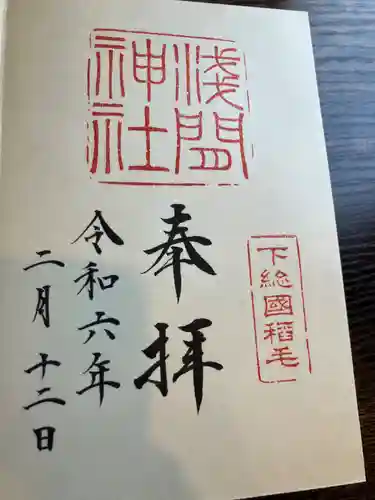 淺間神社
下総國稲毛
奉拝
令和六年
二月十二日